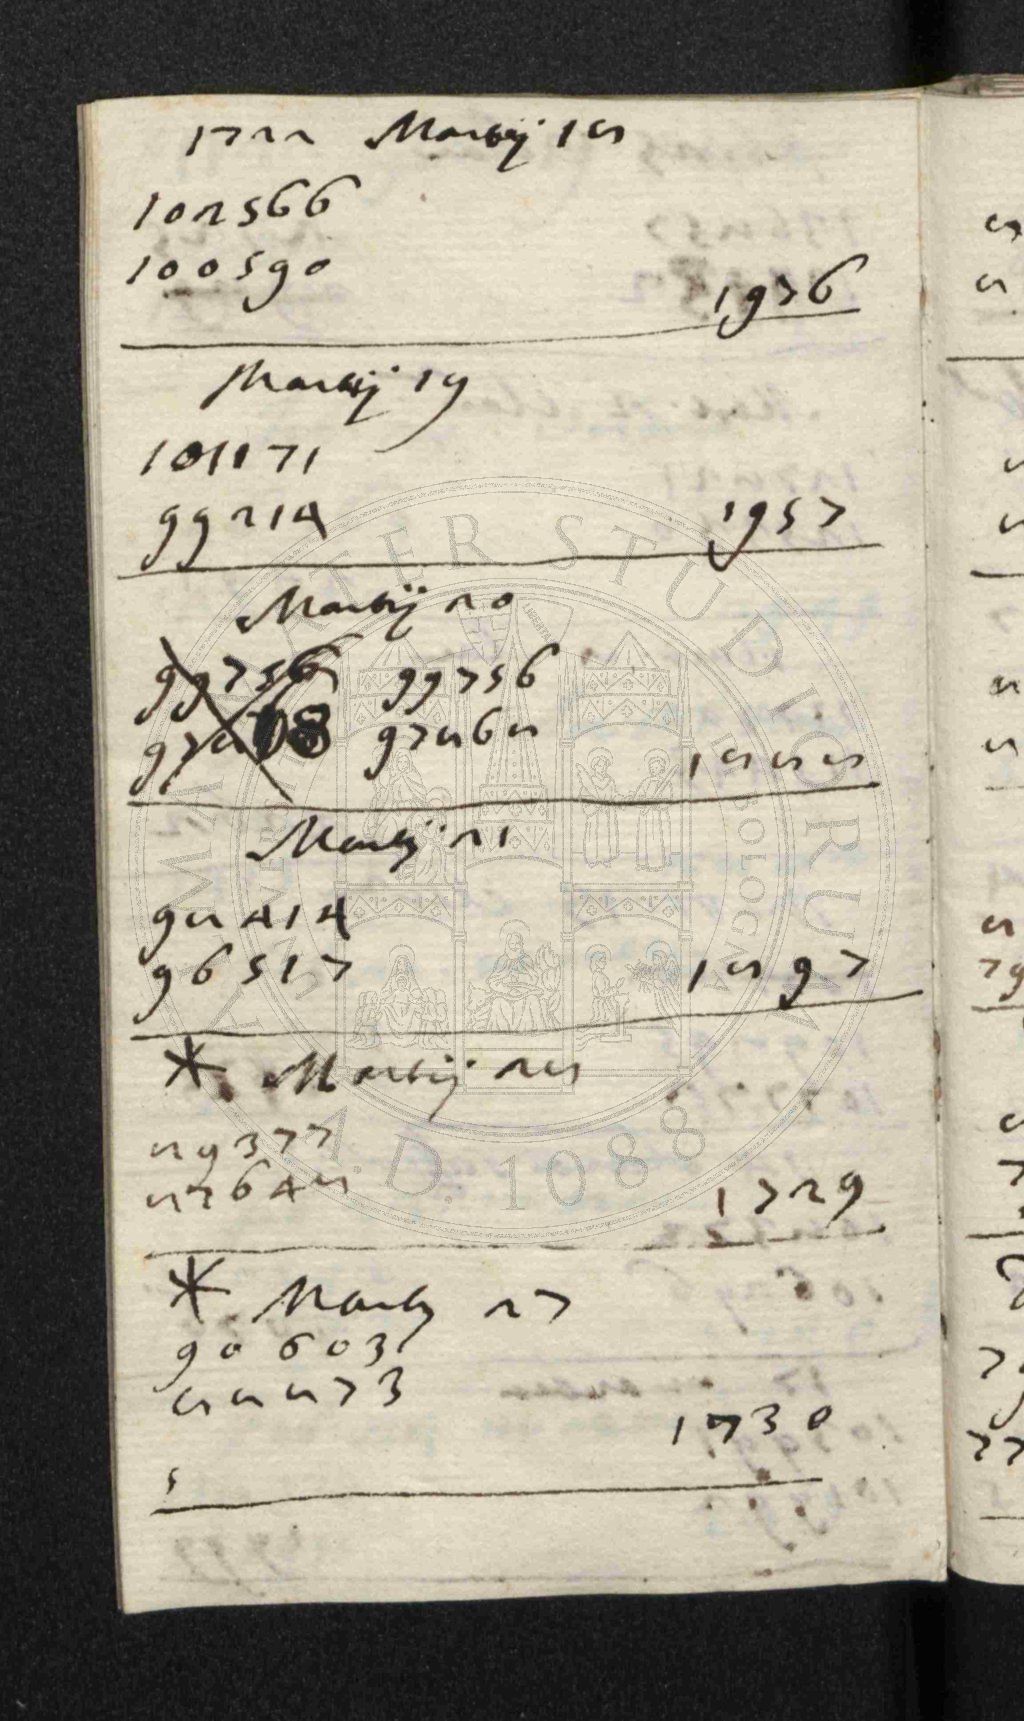 1722 Martij 18
102566
100590
1976
Martij 19
101171
99214
1957
Martij 20
99756 99756
97868
1888
Martij 21
98414
96517
1897
* Martij 28
89377
87648
1729
* Martij 27
90603
88873
1730
ALMA MATER STUDIORUM
A.D. 1088